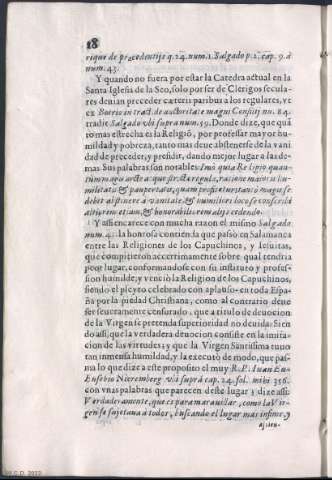 18
rique de precedentijs q.24.num.1. Salgado p.1. cap. 9. à
num.43.
Y quando no fuera por estar la Catedra actual en la
Santa Iglesia de la Seo, solo por ser de Clerigos secula-
res devian preceder cæteris paribus a los regulares, ve
Boerio in tract. de auctoritate magni Consilij nu. 84.
tradit Salgado vbi supra num.55. Donde dize, que quã
to mas estrecha es la Religiõ, por professar mayor hu-
mildad y pobreza, tanto mas deve abstenerse de la vani
dad de preceder, y presidir, dando mejor lugar a las de-
mas. Sus palabras son notables. Imò quia Religio quan-
tùm magis arcta: que stricta regula, ratione maioris hu-
militatis & paupertatis, quam profitetur tanto magis se
debet abstinere à vanitate, & humiliori loco se conscribi
altiorem etiam, & honorabiliorem alijs cedendo.
Y assi encarece con mucha razon el mismo Salgado
num. 41. la honrosa contienda que passò en Salamanca
entre las Religiones de los Capuchinos, y Iesuitas,
que compitieron acerrimamente sobre qual tendria
peor lugar, conformandose con su instituto y profes-
sion humilde, y venciò la Religion de los Capuchinos,
siendo el pleyto celebrado con aplauso en toda Espa-
ña por la piedad Christiana, como al contrario deve
ser severamente censurado, que a titulo de devocion
de la Virgen se pretenda superioridad no devida: Sien
do assi, que la verdadera devocion consiste en la imita-
cion de las virtudes; y que la Virgen Santissima tuvo
tan inmensa humildad, y la executò de modo, que pas-
ma lo que dize a este proposito el muy R. P. Iuan Eu-
Eusebio Nieremberg vbi suprà cap. 24. fol. mihi 356.
con vnas palabras que parecen deste lugar; y dize assi:
Verdaderamente, que es para maravillar, como la Vir-
gen se sujetava a todos, buscando el lugar mas infimo, y